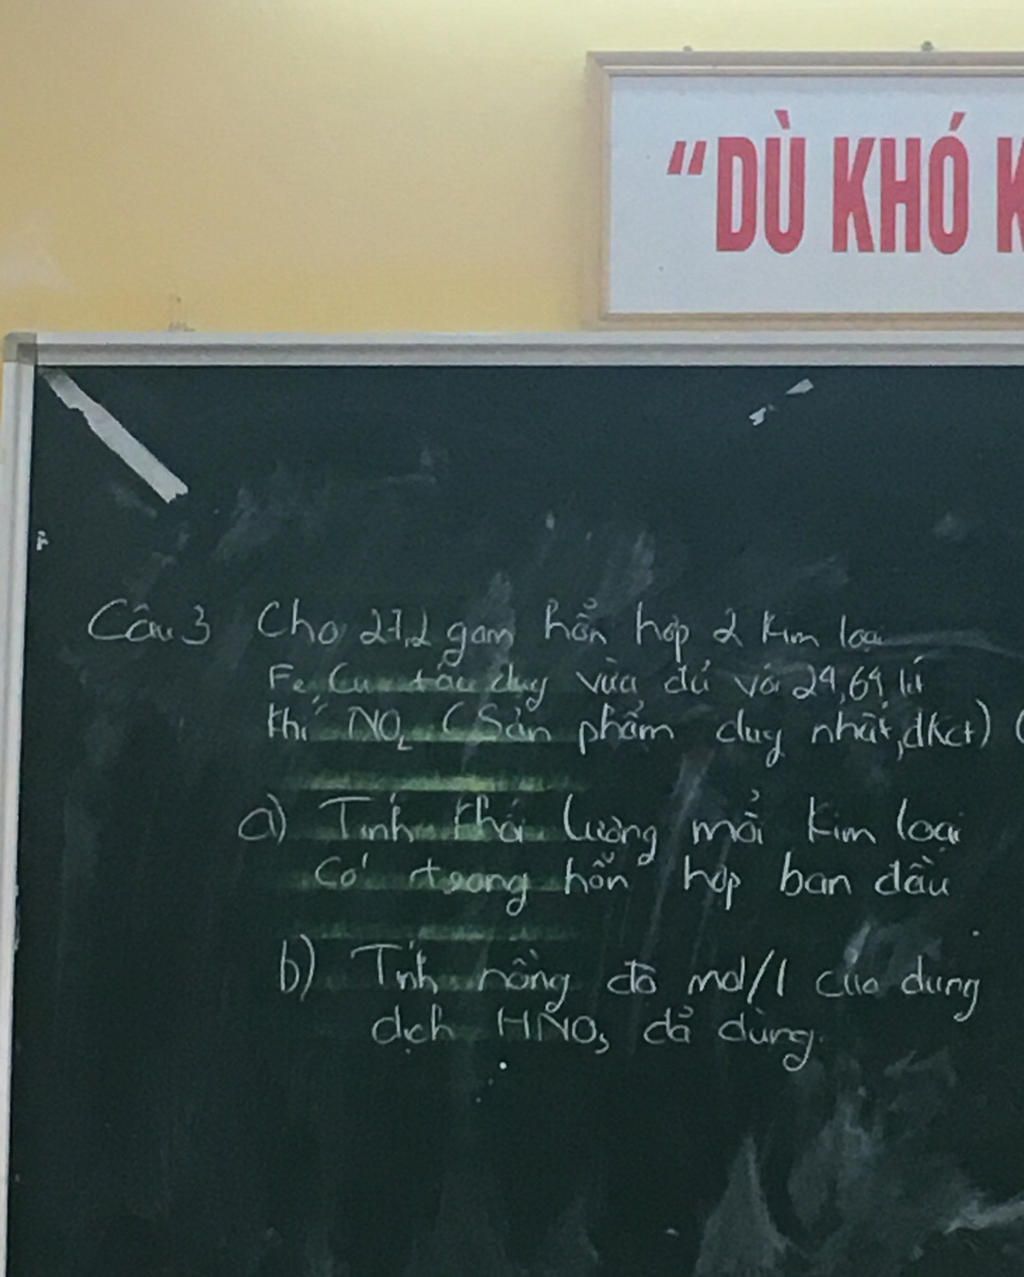 “DÙ KHÓ K
Câu 3 Cho 27,2 gam hỗn hợp 2 kim loại
Fe, Cu tác dụng vừa đủ với 24,64 lít
khí NO2 (Sản phẩm duy nhất, đktc) (
a) Tính khối lượng mỗi kim loại
Có trong hỗn hợp ban đầu
b) Tính nồng độ mol/l của dung
dịch HNO3 đã dùng.